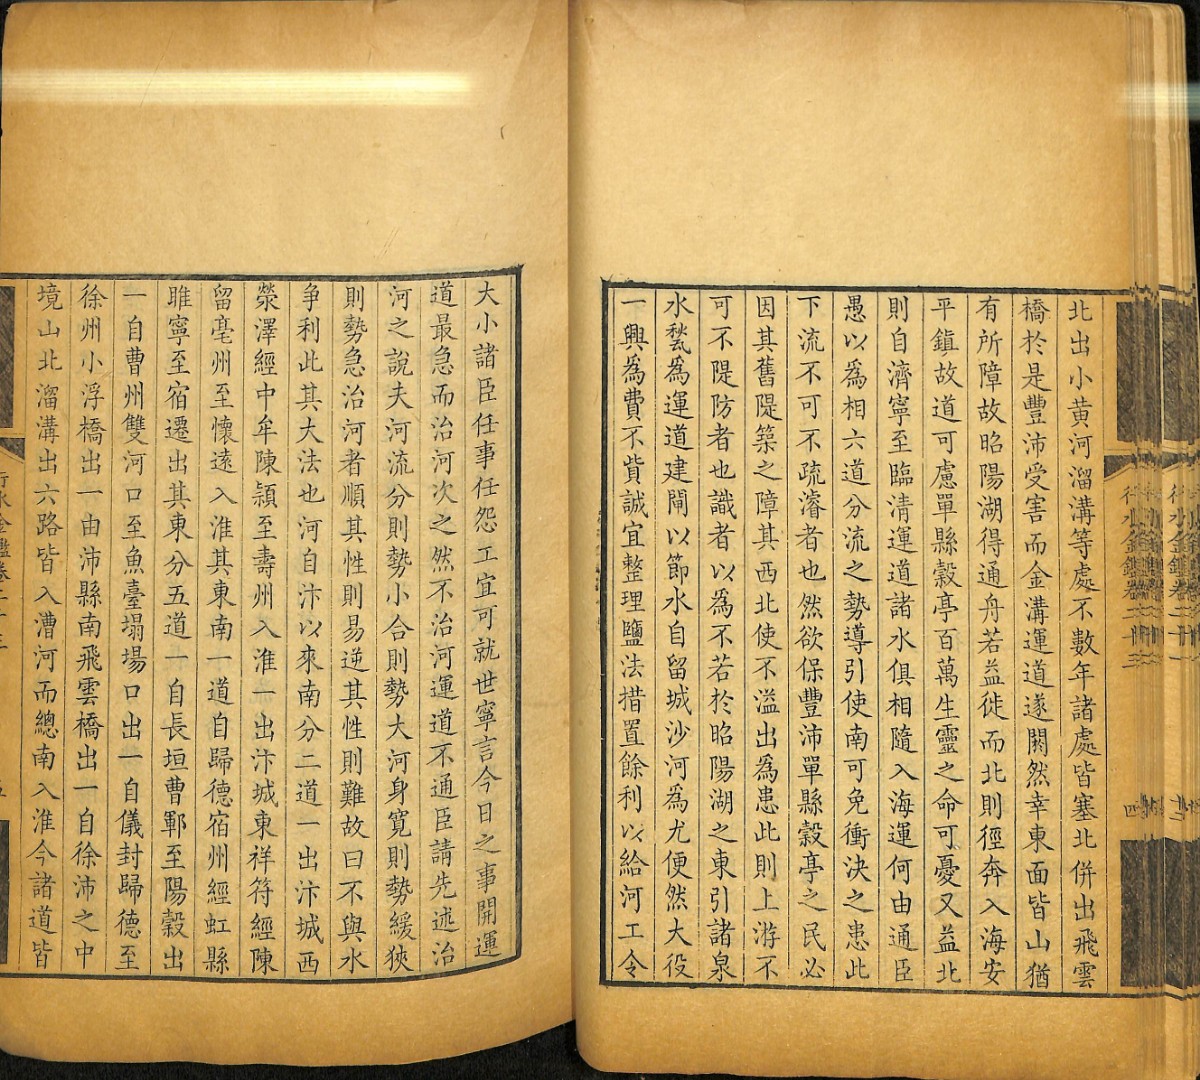 北出小黄河溜溝等處不數年諸處皆塞北併出飛雲
橋於是豐沛受害而金溝運道遂闕然幸東面皆山猶
有所障故昭陽湖得通舟若益徙而北則徑奔入海安
平鎮故道可慮單縣穀亭百萬生靈之命可憂又益北
則自濟寧至臨清運道諸水俱相隨入海運何由通臣
愚以為相六道分流之勢導引使南可免衝決之患此
下流不可不疏濬者也然欲保豐沛單縣穀亭之民必
因其舊隄築之障其西北使不溢出為患此則上游不
可不隄防者也識者以為不若於昭陽湖之東引諸泉
水甃為運道建閘以節水自留城沙河為尤便然大役
一興為費不貲誠宜整理鹽法措置餘利以給河工令
大小諸臣任事任怨工宜可就世寧言今日之事開運
道最急而治河次之然不治河運道不通臣請先述治
河之說夫河流分則勢小合則勢大河身寛則勢緩狹
則勢急治河者順其性則易逆其性則難故曰不與水
争利此其大法也河自汴以來南分二道一出汴城西
滎澤經中牟陳潁至壽州入淮一出汴城東祥符經陳
留亳州至懷遠入淮其東南一道自歸德宿州經虹縣
睢寧至宿遷出其東分五道一自長垣曹鄆至陽榖出
一自曹州雙河口至魚臺塌場口出一自儀封歸德至
徐州小浮橋出一由沛縣南飛雲橋出一自徐沛之中
境山北溜溝出六路皆入漕河而總南入淮今諸道皆
行水金鑑卷二十三